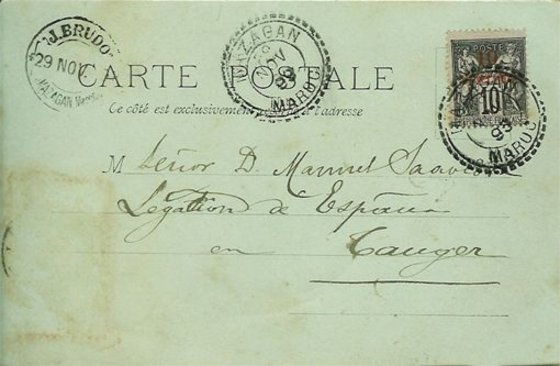 J. BRUDO
29 NOV
MAZAGAN Maroc
MAZAGAN
29
NOV
99
MAROC
POSTE
10
10
MAROC
CARTE POSTALE
Ce côté est exclusivement réservé à l'adresse
M Señor D. Manuel Saave
Legation de España
en Tanger